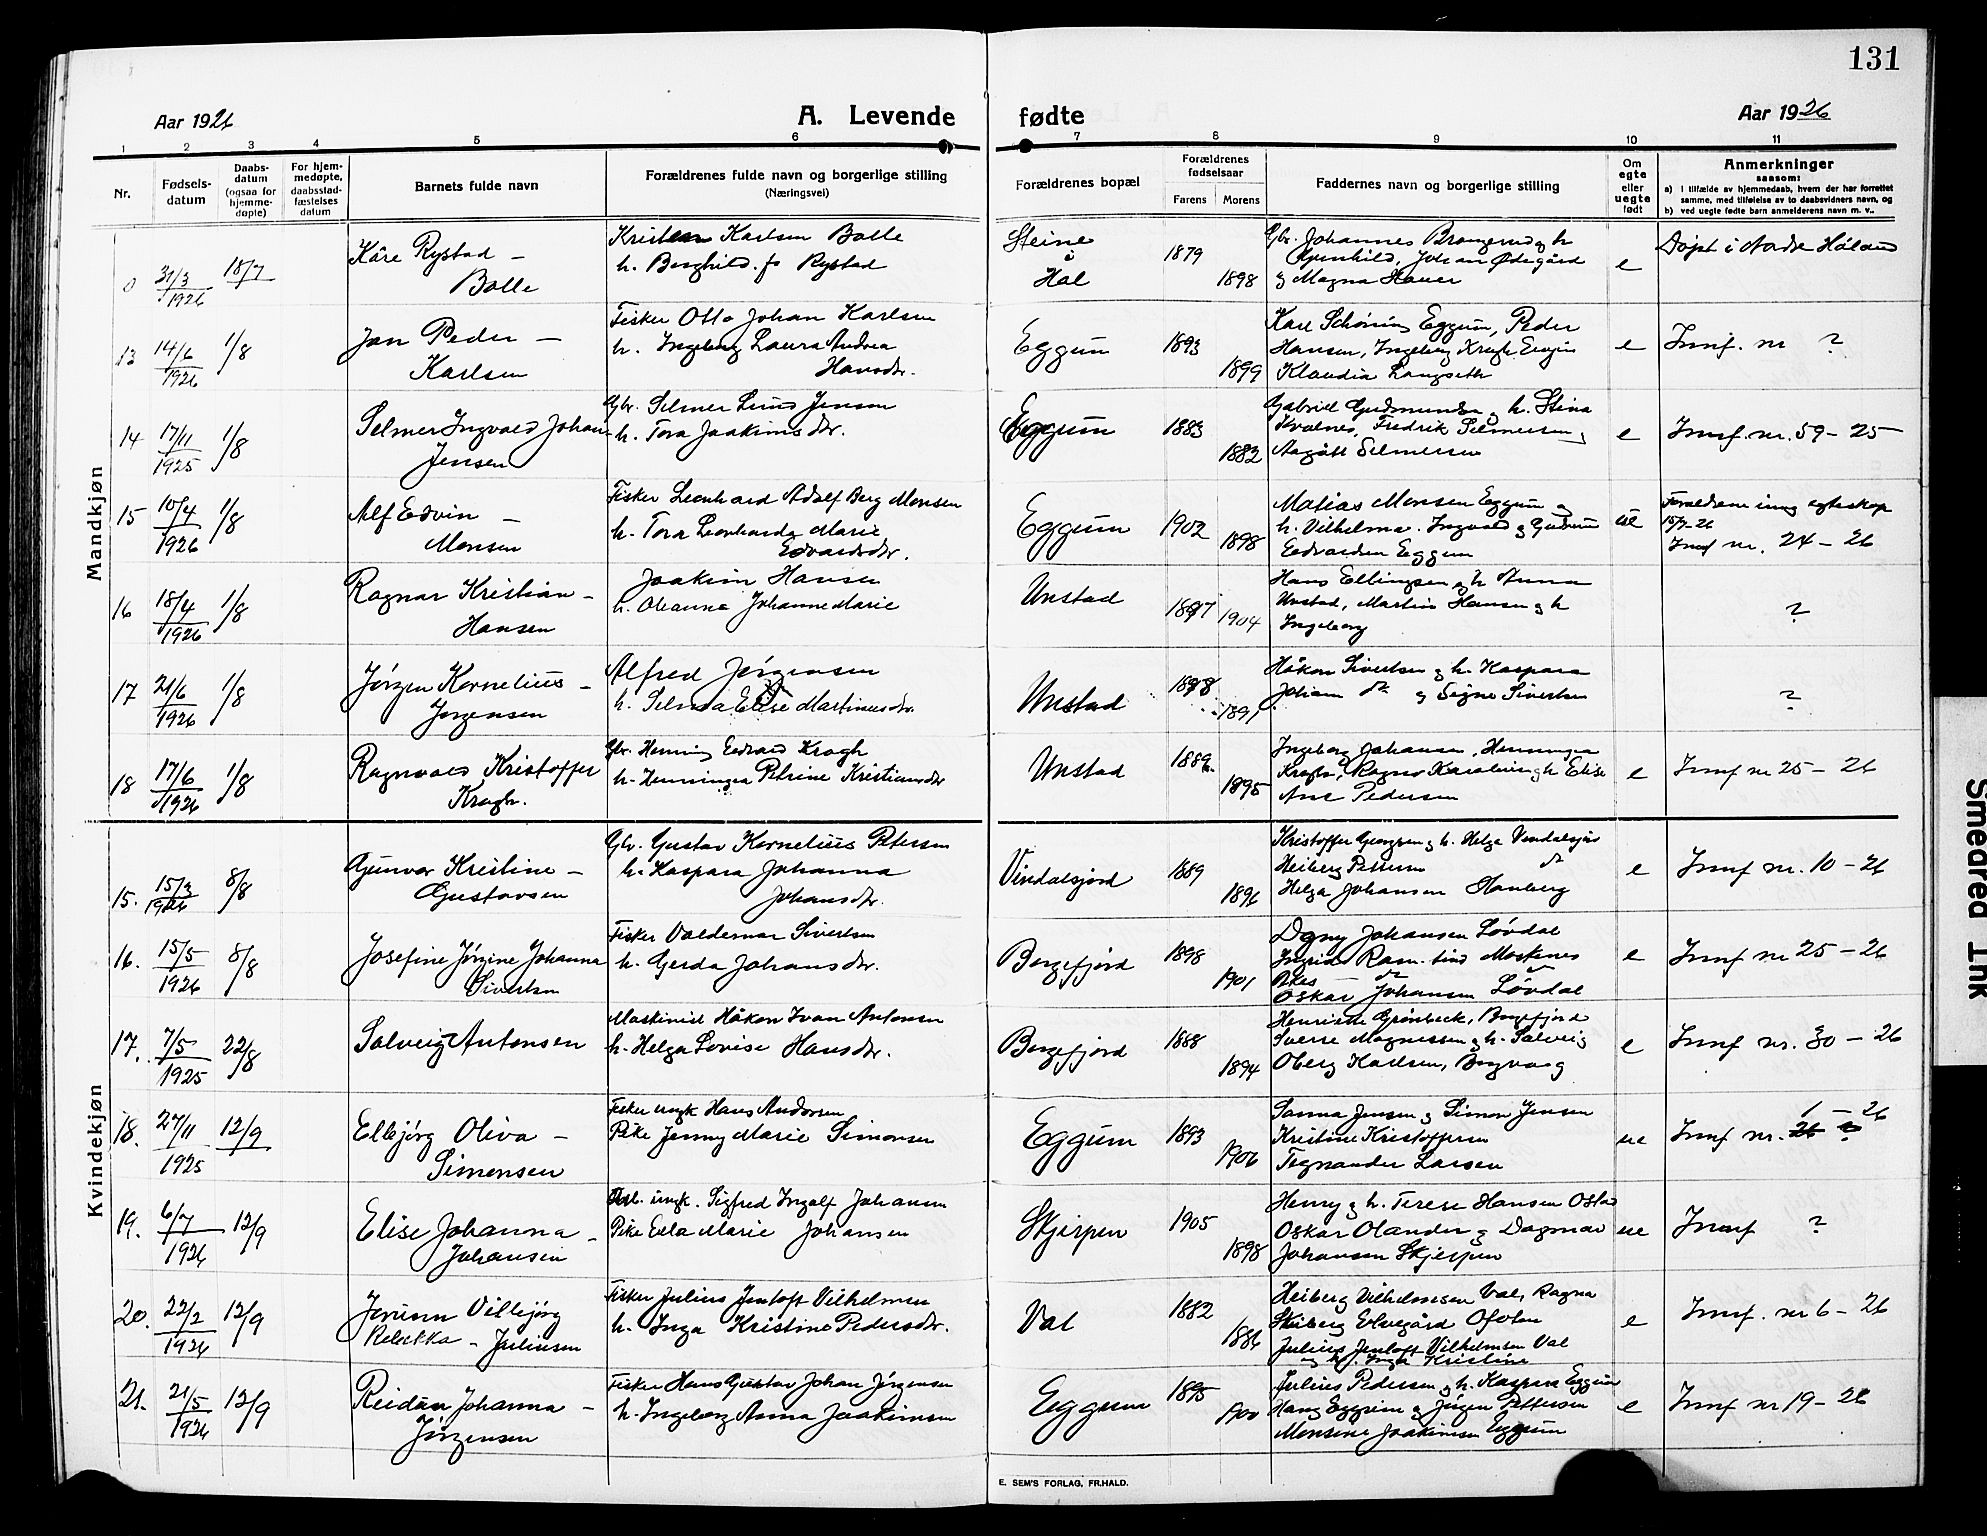 131
Aar 1926
A. Levende fødte
Aar 1926
1 2 3 4 5 6 7 8 9 10 11
Nr.
Fødsels-
datum
Daabs-
datum
(ogsaa for
hjemme-
døpte)
For hjem-
medøpte,
daabsstad-
fæstelses
datum
Barnets fulde navn
Forældrenes fulde navn og borgerlige stilling
(Næringsvei)
Forældrenes bopæl
Forældrenes
fødselsaar
Farens Morens
Faddernes navn og borgerlige stilling
Om
egte
eller
uegte
født
Anmerkninger
saasom:
a) i tilfælde av hjemmedaab, hvem der har forrettet
samme, med tilføielse av to daabsvidners navn, og
b) ved uegte fødte barn anmelderens navn m. v..
Mandkjøn
0 31/3 1926 18/7
Kåre Rystad –
Bolle
Kristian Karlsen Bolle
h. Borghild f. Rystad
Steine
i
Hol
1879 1898
Gbr. Johannes Brangerud og h
Johan Ødegård
og Magna Hauer
e
Døpt i Nordre Høland
13 14/6 1926 1/8
Jan Peder –
Karlsen
Fisker Otto Johan Karlsen
h. Ingeborg Laura Andrea
Hansdtr.
Eggum
1893 1899
Karl Schöning Eggum, Peder
Hansen, Ingeborg Krogh
Klaudia Langseth
e
Innf. nr ?
14 17/11 1925 1/8
Selmer Ingvald Johan
Jensen
Gbr. Selmer Lund Jensen
h. Tora Joakimsdtr.
Eggum
1883 1882
Gabriel Gudmundsen og h. Stina
Kvalnes, Fredrik Selmersen og
Aagått Selmersen
e
Innf. nr. 59 – 25
15 10/4 1926 1/8
Alf Edvin –
Monsen
Fisker Leonhard Adolf Berg Monsen
h. Tora Leonharda Marie
Edvardsdtr.
Eggum
1902 1898
Matias Monsen Eggum og
h. Vilhelma. Ingvald og Gudrun
Edvardsen Eggum
ue
Foreldrene inng egteskap
15/7-26
Innf nr. 24 – 26
16 18/4 1926 1/8
Ragnar Kristian –
Hansen
Joakim Hansen
h. Oleanna Johanne Marie
Unstad
1897 1904
Hans Ellingsen og h Anna
Unstad, Martin Hansen og h
Ingeborg
?
17 21/6 1926 1/8
Jørgen Kornelius –
Jørgensen
Alfred Jørgensen
h. Selma Elise Martinusdtr.
Unstad
1898 1891
Håkon Sivertsen og h. Kaspara
Johan do og Signe Sivertsen
?
18 17/6 1926 1/8
Ragnvald Kristoffer
Krogh.
Gbr. Henning Edvard Krogh
h. Henningia Petrine Kristiansdtr
Unstad
1889 1895
Ingeborg Johansen, Henningia
Krogh, Ragnv Karolius og h Elise
Ane Pedersen
e
Innf nr 25 – 26
Kvindekjøn
15. 15/3 1926 8/8
Gunvor Kristine –
Gustavsen
Gbr. Gustav Kornelius Petersen
h. Kaspara Johanna
Johansdtr.
Vindalsjord
1889 1896
Kristoffer Georgsen og h. Helga Vindalsjord
Heiberg Pettersen do
Helga Johansen Hanberg
e
Innf nr. 10 – 26
16. 15/5 1926 8/8
Josefine Jørgine Johanna
Sivertsen
Fisker Valdemar Sivertsen
h. Gerda Johansdtr.
Borgefjord
1898 1901
Dagny Johansen Løvdal
Ingrid Moskenes
do
Oskar Johansen Løvdal
e
Innf nr 25 – 26
17. 7/5 1925 22/8
Solveig Antonsen
Maskinist Håkon Ivan Antonsen
h. Helga Lovise Hansdtr.
Borgefjord
1888 1894
Henriette Grønbeck, Borgefjord
Sverre Magnussen og h. Solveig
Oberg Karlsen, Borgvaag
e
Innf nr. 30 – 26
18. 27/11 1925 12/9
Ellbjørg Oliva –
Simonsen
Fisker ungk Hans Andorsen
Pike Jenny Marie Simonsen
Eggum
1893 1906
Sanna Jensen og Simon Jensen
Kristine Kristoffersen
Tegnander Larsen
ue
Innf nr. 1 – 26
19. 6/7 1926 12/9
Elise Johanna –
Johansen
ungk. Sigfred Ingolf Johansen
Pike Edla Marie Johansen
Skjerpen
1905 1898
Henry og h. Terese Hansen Ostad
Oskar Olander og Dagmar
Johansen Skjerpen
ue
Innf ?
20. 22/2 1926 12/9
Jorunn Villbjørg
Rebekka – Juliussen
Fisker Julius Jentoft Vilhelmsen
h. Inga Kristine Pedersdtr.
Val
1882 1886
Heiberg Vilhelmsen Val, Ragna
Skiberg Elvegård Ofoten
Julius Jentoft Vilhelmsen Val
og h. Inga Kristine
e
Innf. nr 6 – 26
21. 21/5 1926 12/9
Reidun Johanna –
Jørgensen
Fisker Hans Gustav Johan Jørgensen
h. Ingeborg Anna Joakimsen
Eggum
1895 1900
Julius Pedersen og h. Kaspara Eggum
Hans Eggum og Jørgen Pettersen
Monsine Joakimsen Eggum
e
Innf nr 19 – 26
E. SEM'S FORLAG, FR.HALD.
Smeared Ink